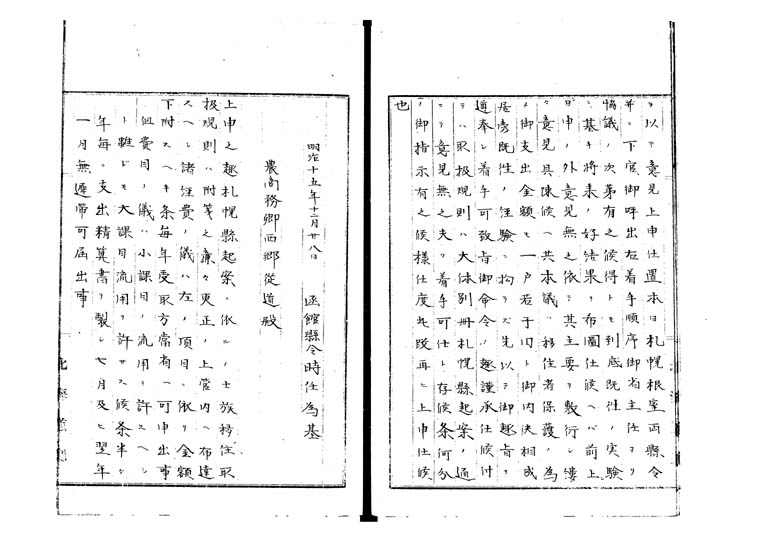 ヲ以テ意見上申仕置本日札幌根室両縣令
并ニ下官御呼出右着手順序御省主任ヨリ
協議ノ次第有之候得トモ到底既徃ノ実験
ニ基キ将来ノ好結果ヲ布圖仕候ヘハ前上
申ノ外意見無之依テ其主要ヲ敷衍シ縷
々意見具陳候ヘ共本議ハ移住者保護ノ為
ノ御支出金額モ一户若干円ト御内决相成
居旁既徃ノ経験ニ拘ラス先以テ御趣旨ヲ
遵奉シ着手可致旨御命令ノ趣謹承仕候付
テハ取扱規則ハ大体別冊札幌縣起案ノ通
ニテ意見無之夫々着手可仕ト存候条何分
ノ御指示有之候様仕度此段再ヒ上申仕候
也
明治十五年十二月廿八日 函館縣令時任為基
農商務卿西郷従道殿
上申之趣札幌縣起案ニ依ル士族移住取
扱規則ハ附箋之廉々更正ノ上管内ヘ布達
スヘシ諸経費ノ儀ハ左ノ項目ニ依リ金額
下附スヘキ条毎年受取方當省ヘ可申出事
但費目ノ儀ハ小課目ノ流用ヲ許スヘシ
ト雖トモ大課目流用ヲ許サス候条半ヶ
年毎ニ支出精算書ヲ製シ七月及ヒ翌年
一月無遅滞可届出事